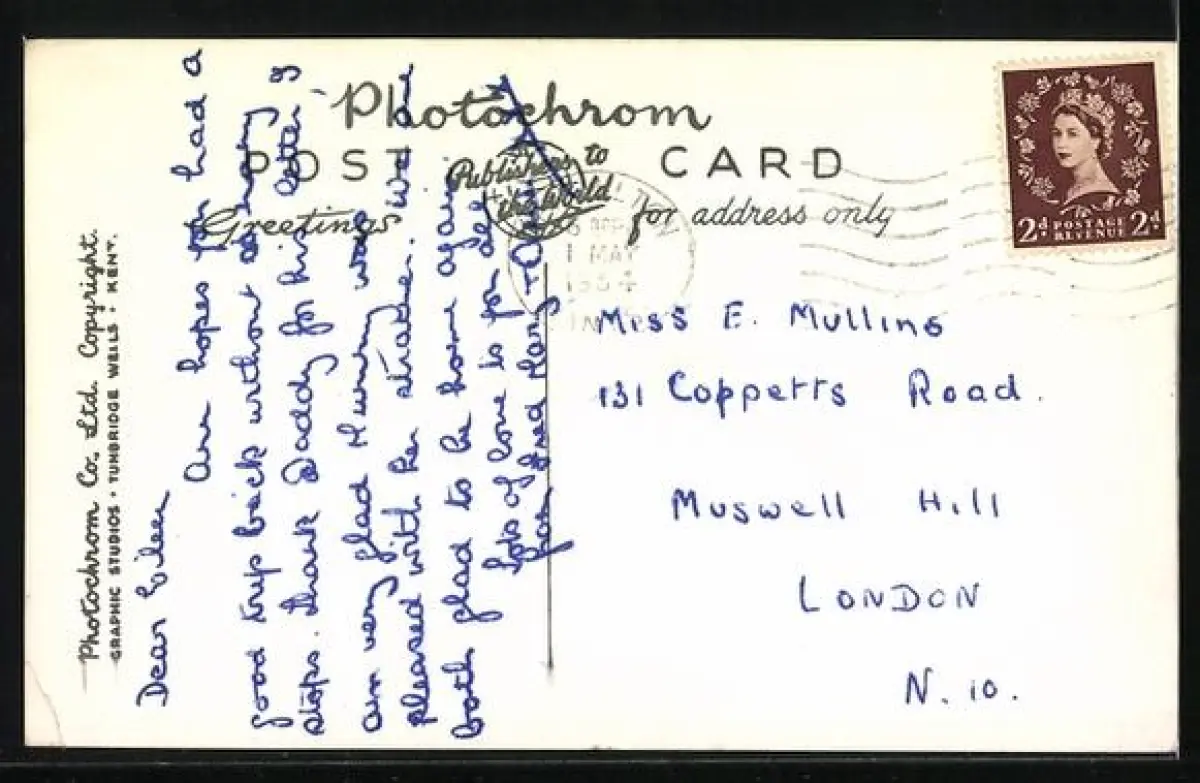 Photochrom
POST CARD
Publishers to
the World
Greetings
for address only
Photochrom Co. Ltd. Copyright.
GRAPHIC STUDIOS • TUNBRIDGE WELLS • KENT.
2d POSTAGE 2d
REVENUE
1 MAY
Dear Eileen
Am hopes you had a
good trip back without so many
stops. thank Daddy for his letter, I
am very glad Mummy was
pleased with her strake. we are
both glad to be home again
lots of love is for all
from Fred Mary +
Miss E. Mullins
131 Coppetts Road.
Muswell Hill
LONDON
N. 10.